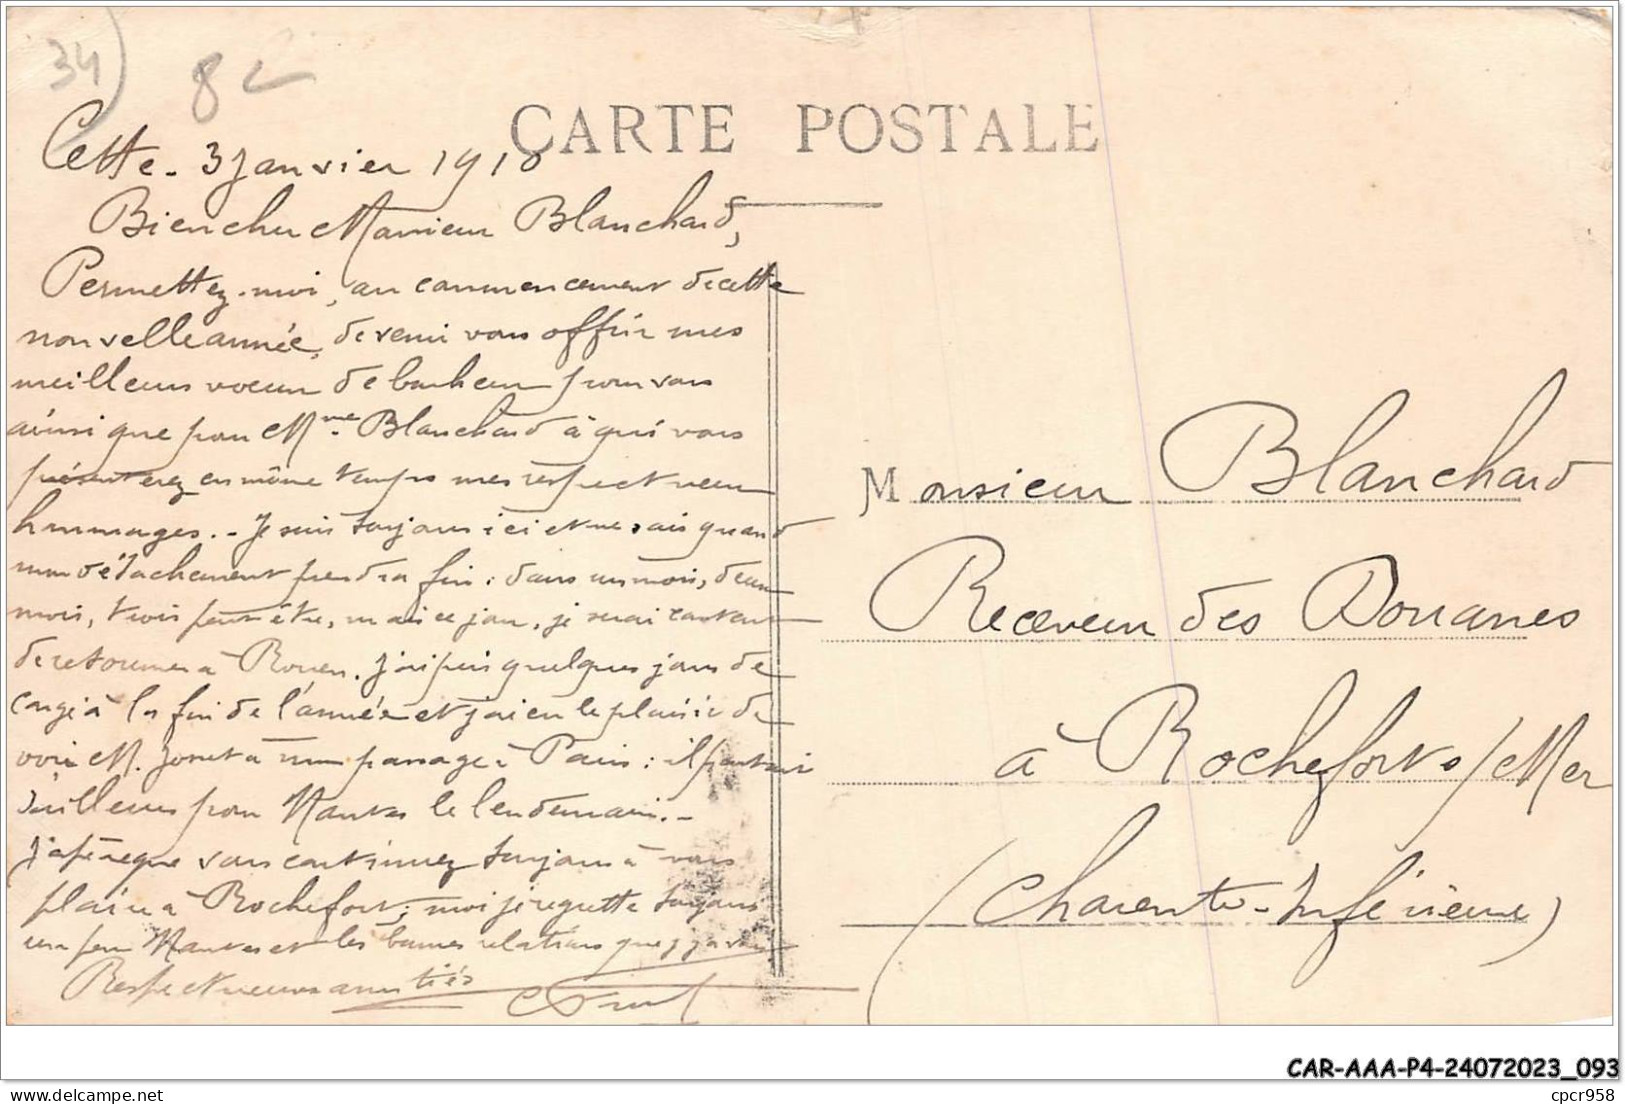 34
8
CARTE POSTALE
Cette - 3 Janvier 1918
Bien cher Monsieur Blanchard,
Permettez-moi, au commencement de cette
nouvelle année, de venir vous offrir mes
meilleurs voeux de bonheur pour vous
ainsi que pour Mme Blanchard à qui vous
présenterez en même temps mes respectueux
hommages. - Je suis toujours ici et ne sais quand
mon détachement prendra fin : dans un mois, deux
mois, trois peut être, mais ce jour, je serai content
de retourner à Rouen. J'ai pris quelques jours de
congé à la fin de l'année et j'ai eu le plaisir de
voir M. à mon passage à Paris : il partait
d'ailleurs pour Nantes le lendemain. -
J'espère que vous continuez toujours à vous
plaire à Rochefort ; moi je regrette toujours
un peu Nantes et les bonnes relations que j'y avais
Respectueuses amitiés
Monsieur Blanchard
Receveur des Douanes
à Rochefort s/Mer
(Charente-Inférieure)
CAR-AAA-P4-24072023_093
https://www.delcampe.net
cpcr958